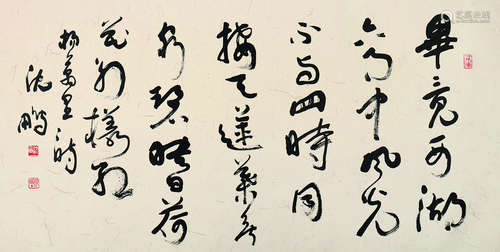 畢竟西湖
六月中風光
不与四時同
接天蓮葉無
窮碧映日荷
花別樣紅
楊萬里詩
沈鵬